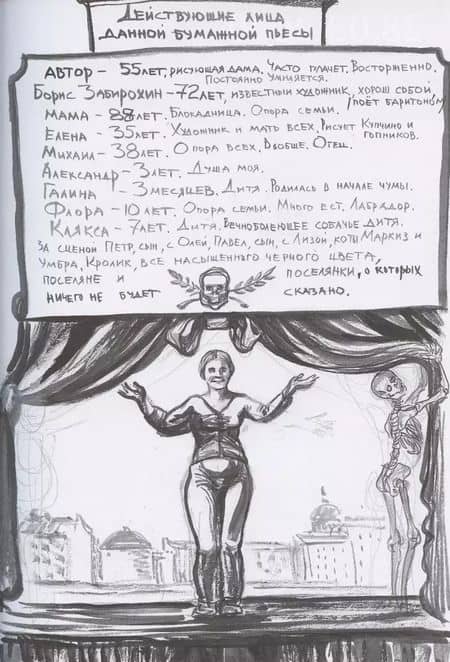 Действующие лица
данной бумажной пьесы
Автор – 55 лет, рисующая дама. Часто плачет. Восторженно.
Постоянно умиляется.
Борис Забирохин – 72 лет, известный художник, хорош собой
/поёт баритоном/
Мама – 88 лет. Блокадница. Опора семьи.
Елена – 35 лет. Художник и мать всех. Рисует Купчино и
гопников.
Михаил – 38 лет. Опора всех, вообще. Отец.
Александр – 3 лет. Душа моя.
Галина – 3 месяцев. Дитя. Родилась в начале чумы.
Флора – 10 лет. Опора семьи. Много ест. Лабрадор.
Клякса – 7 лет. Дитя. Вечноболеющее собачье дитя.
За сценой Петр, сын, с Олей, Павел, сын, с Лизой, коты Маркиз и
Умбра, Кролик, все насыщенного черного цвета,
поселяне и поселянки, о которых
ничего не будет сказано.